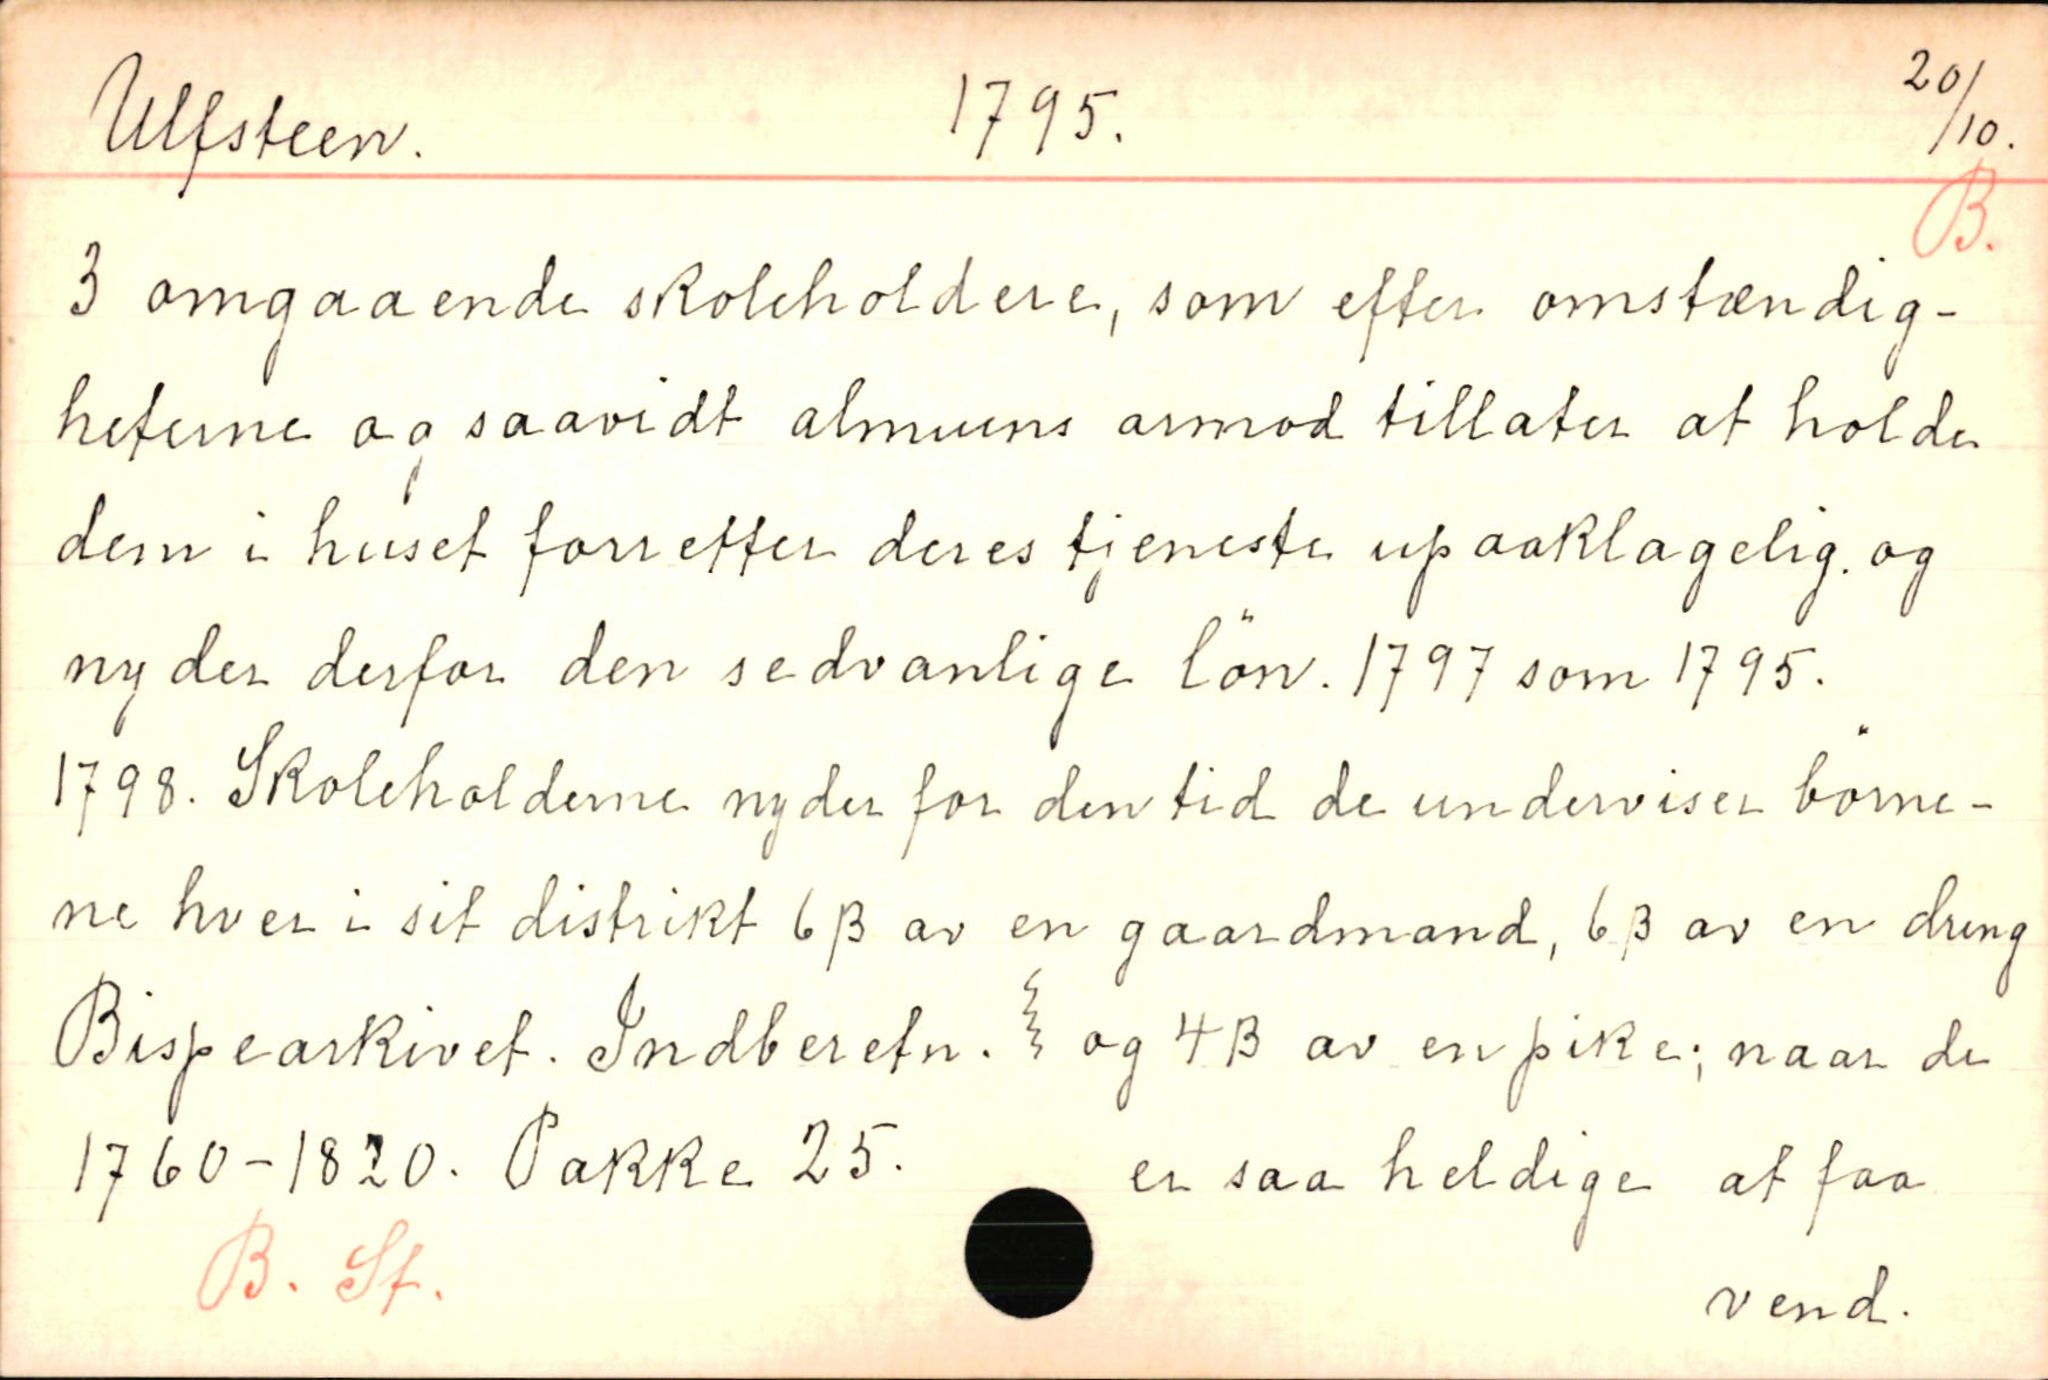 Ulfsteen. 1795. 20/10.
B.
3 omgaaende skoleholdere, som efter omstændig-
heterne og saavidt almuens armod tillater at holde
dem i huset forretter deres tjeneste upaaklagelig. og
nyder derfor den sedvanlige lön. 1797 som 1795.
1798. Skoleholderne nyder for den tid de underviser börne-
ne hver i sit distrikt 6 β av en gaardmand, 6 β av en dreng
Bispearkivet. Indberetn. } og 4 β av en pike; naar de
1760-1820. Pakke 25. er saa heldige at faa
B. St.
vend.